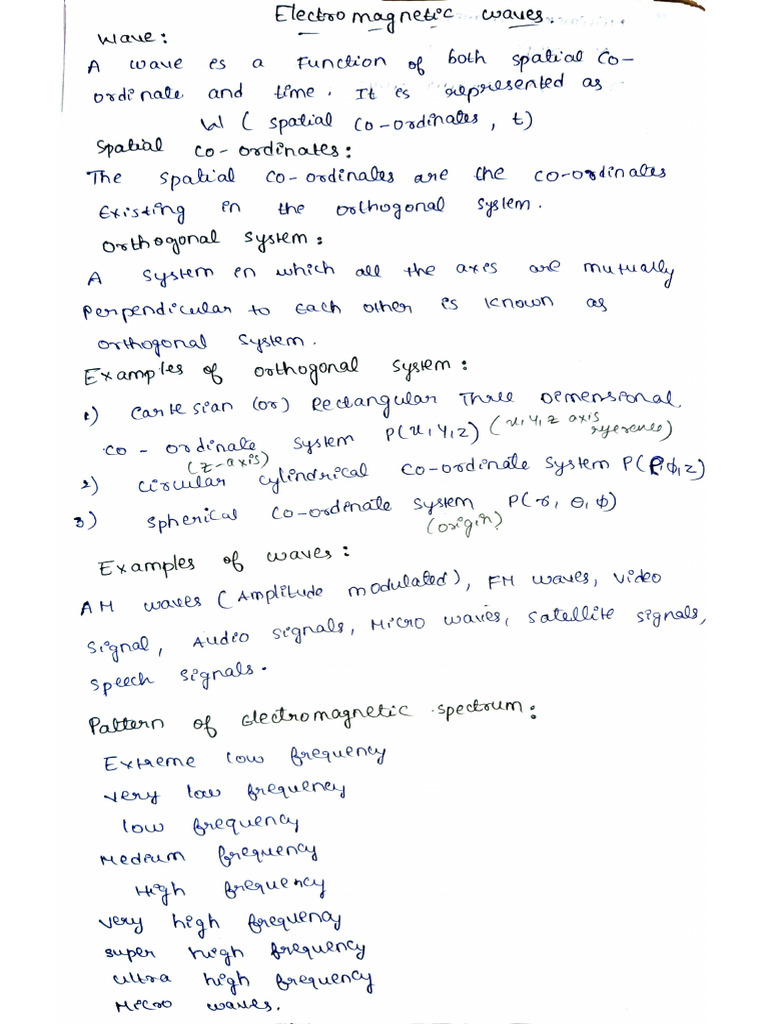 Electromagnetic waves.
Wave:
A wave is a Function of both spatial Co-
ordinate and time. It is represented as
W ( spatial Co-ordinates, t)
Spatial co-ordinates:
The spatial co-ordinates are the co-ordinates
Existing in the orthogonal system.
Orthogonal system:
A system in which all the axis are mutually
perpendicular to Each other is known as
orthogonal system.
Examples of orthogonal system:
1) Cartesian (or) Rectangular Three Dimensional
co-ordinate system P(x,y,z) (x,y,z axis
reference)
(z-axis)
2) circular cylindrical co-ordinate system P(ρ,φ,z)
3) spherical co-ordinate system P(r, θ, φ)
(origin)
Examples of waves:
AM waves (Amplitude modulated), FM waves, video
signal, Audio signals, Micro waves, satellite signals,
speech signals.
Pattern of electromagnetic spectrum:
Extreme low frequency
very low frequency
low frequency
Medium frequency
High frequency
very high frequency
super high frequency
ultra high frequency
Micro waves.